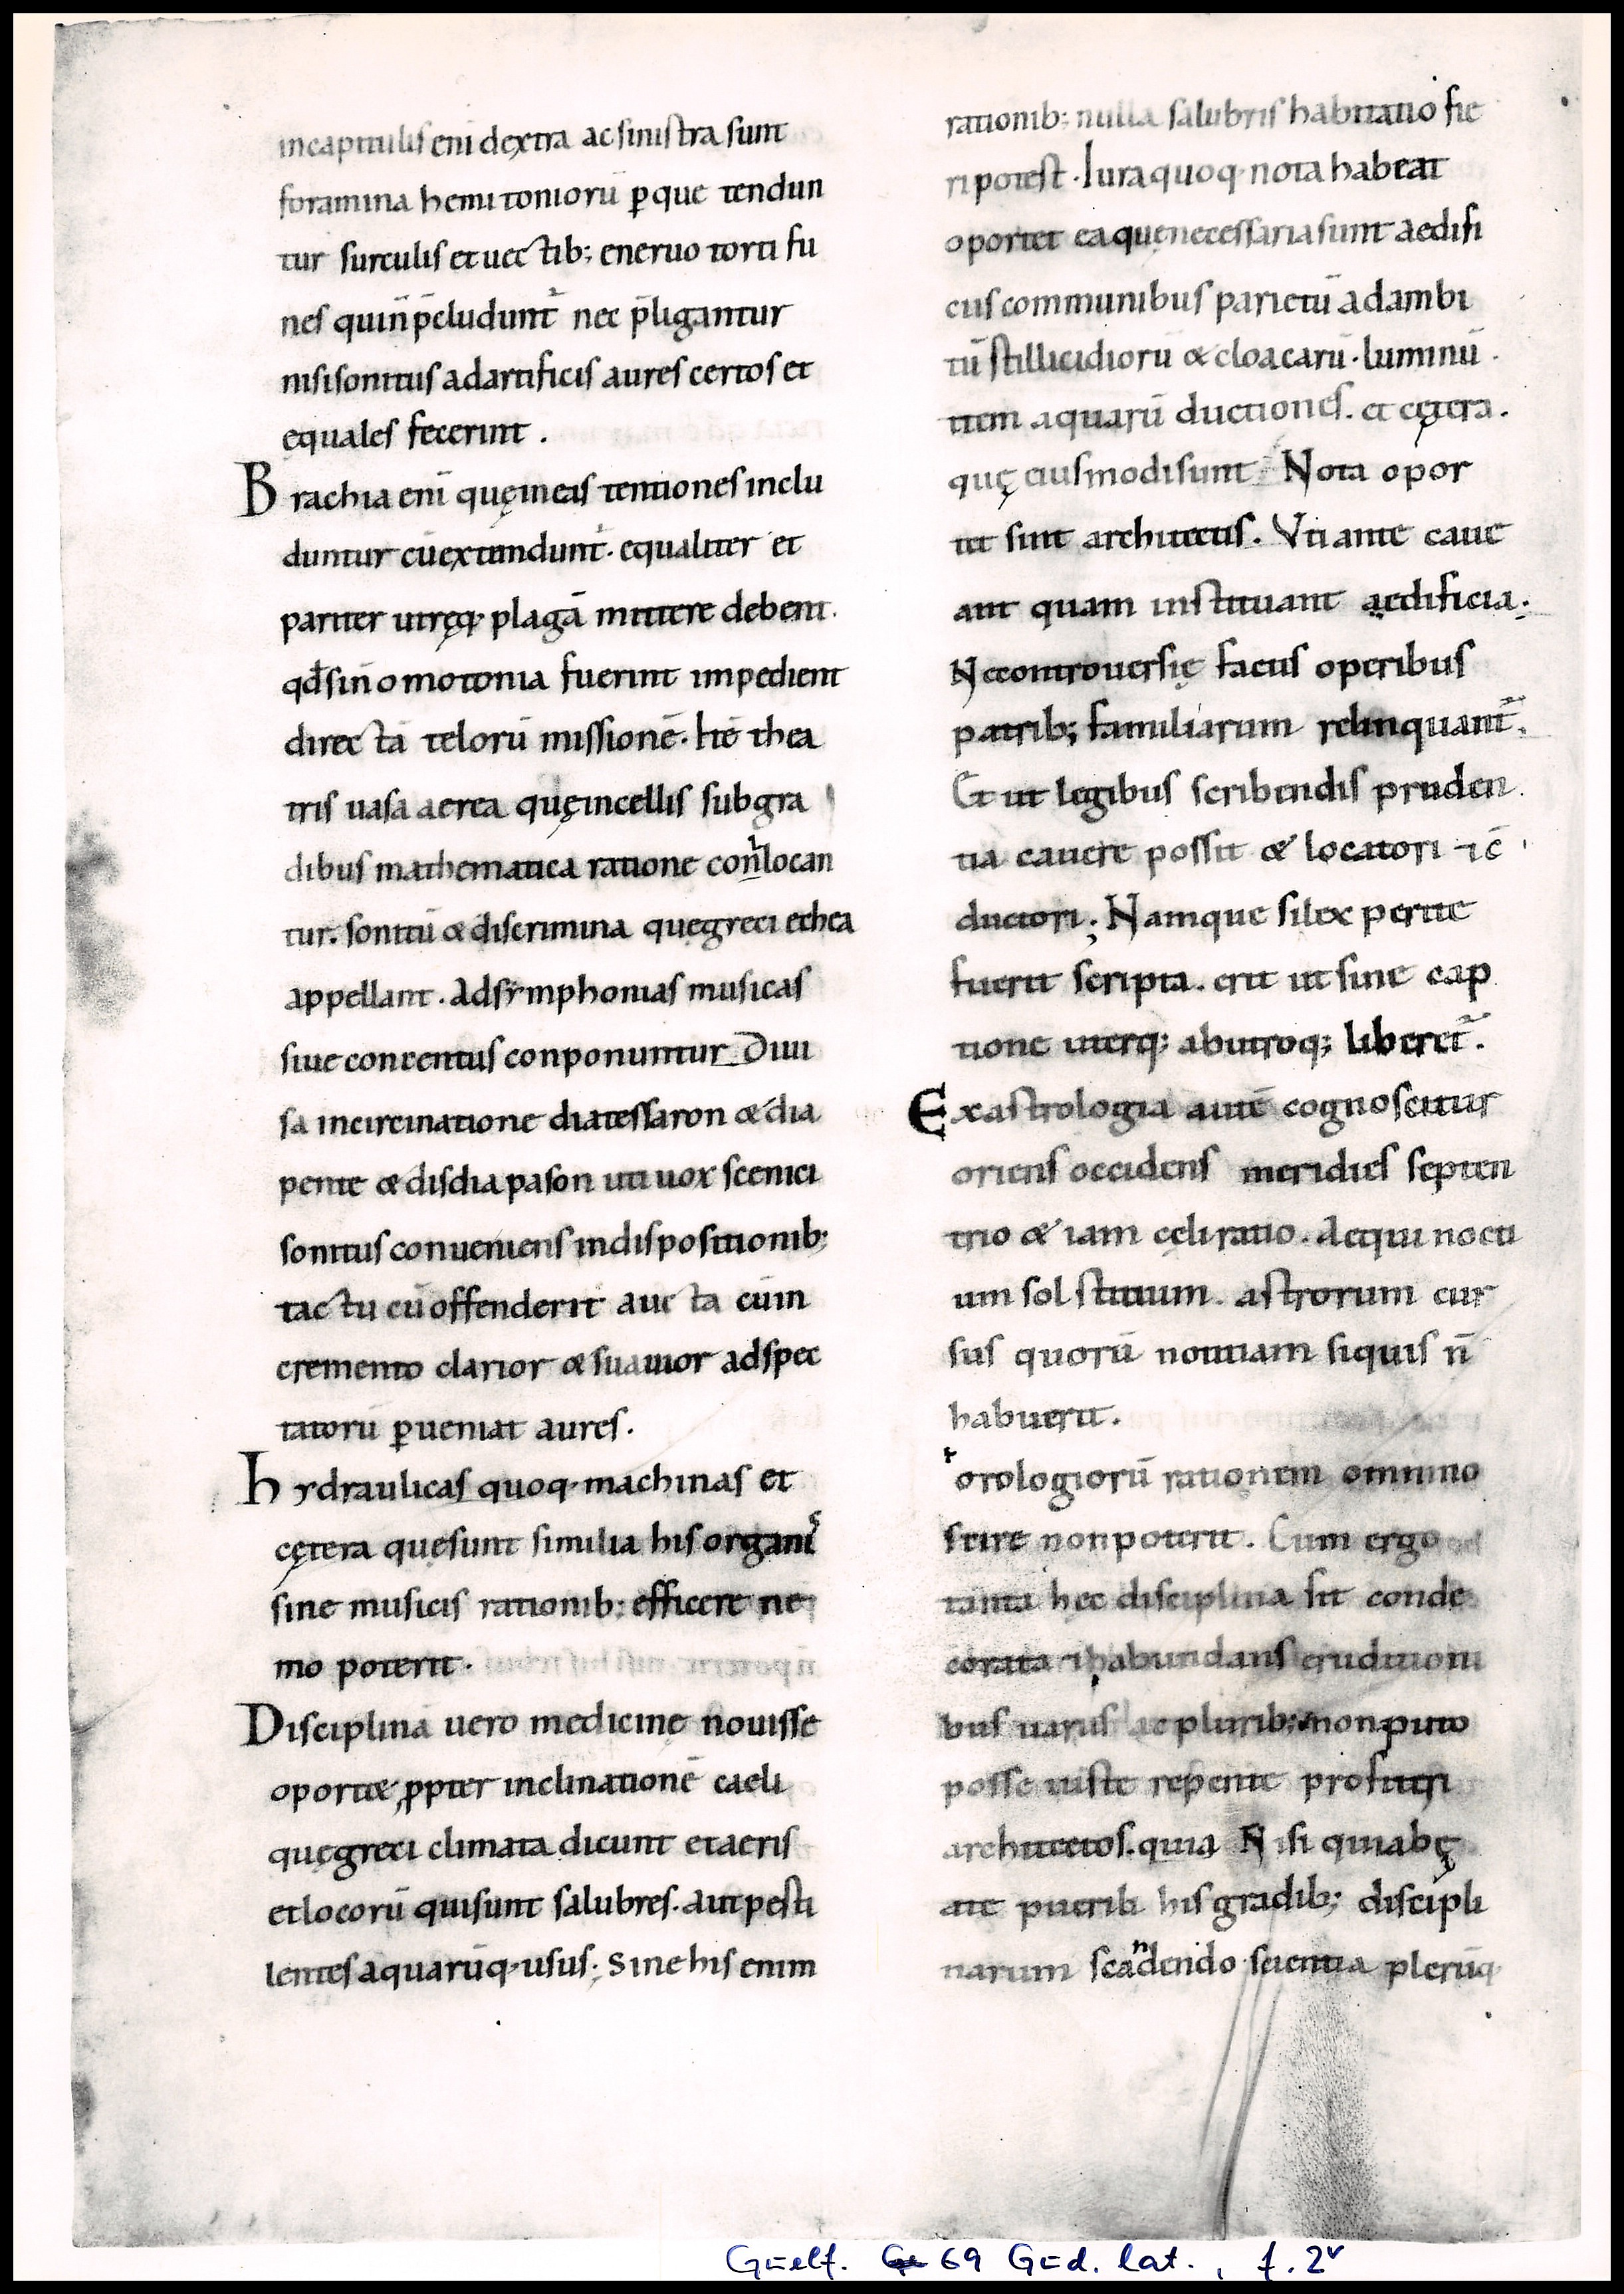 incapitulis eni dextra ac sinistra sunt
foramina hemitoniorū ꝑque tendun
tur surculis et uectib; eneruo torti fu
nes quin̄ p̄cludunt᷑ nec p̄ligantur
nisi sonitus ad artificis aures certos et
equales fecerint .
Brachia eni quę in eas tentiones inclu
duntur cū extendunt᷑. equaliter et
pariter utręq· plagā mittere debent.
qd̄ sin̄ omotonia fuerint impedient
directā telorū missionē. Itē thea
tris uasa aerea quę incellis sub gra
dibus mathematica ratione conlocan
tur. sonitū & discrimina quę greci echea
appellant. Ad symphonias musicas
siue concentus conponuntur Diui
sa incircinatione diatessaron & dia
pente & disdiapason uti uox scenici
sonitus conueniens indispositionib;
tactu cū offenderit aucta cūin
cremento clarior & suauior adspec
tatorū ꝑueniat aures.
hydraulicas quoq· machinas et
cętera quę sunt similia his organis
sine musicis rationib; efficere ne
mo poterit.
Disciplinā uero medicinę nouisse
oport& ꝓpter inclinationē caeli
quę greci climata dicunt et aeris
et locorū qui sunt salubres. aut pesti
lentes aquarūq· usus; Sine his enim
rationib; nulla salubris habitatio fie
ri potest. Iura quoq· nota habeat
oportet ea quę necessaria sunt aedifi
ciis communibus parietū ad ambi
tū stillicidiorū & cloacarū. luminū.
item aquarū ductiones. et cętera.
quę eiusmodi sunt Nota opor
tet sint architectis. Vti ante caue
ant quam instituant aedificia;
Ne controuersię factis operibus
patrib; familiarum relinquant᷑.
Et ut legibus scribendis pruden
tia cauere possit & locatori ⁊ c̄
ductori; Namque si lex perite
fuerit scripta. erit ut sine cap
tione uterq; ab utroq; liberet᷑.
Ex astrologia autē cognoscitur
oriens occidens meridies septen
trio & iam cęli ratio. Aequinocti
um solstitium. astrorum cur
sus quorū notitiam siquis n̄
habuerit.
orologiorū rationem omnino
scire non poterit. Cum ergo
tanta hec disciplina sit conde
corata ⁊ habundans eruditioni
bus uariis ac plurib; non puto
posse iuste repente profiteri
architectos. quia Nisi qui ab ę
ate puerili his gradib; discipli
narum scandendo scientia plerūq·
Guelf. 69 Gud. lat., f. 2v